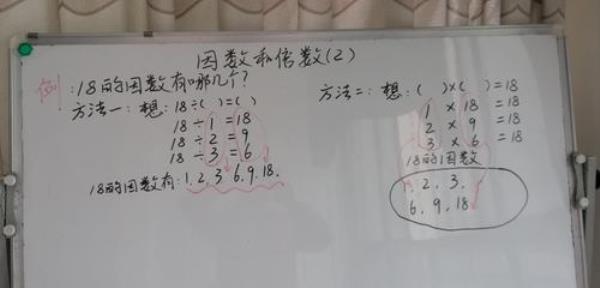 因数和倍数(2)
例:18的因数有哪几个?
方法一:想:18÷( )=( )
18÷1=18
18÷2=9
18÷3=6
18的因数有:1.2.3.6.9.18.
方法二:想:( )×( )=18
1×18=18
2×9=18
3×6=18
18的因数
1.2.3.
6.9.18